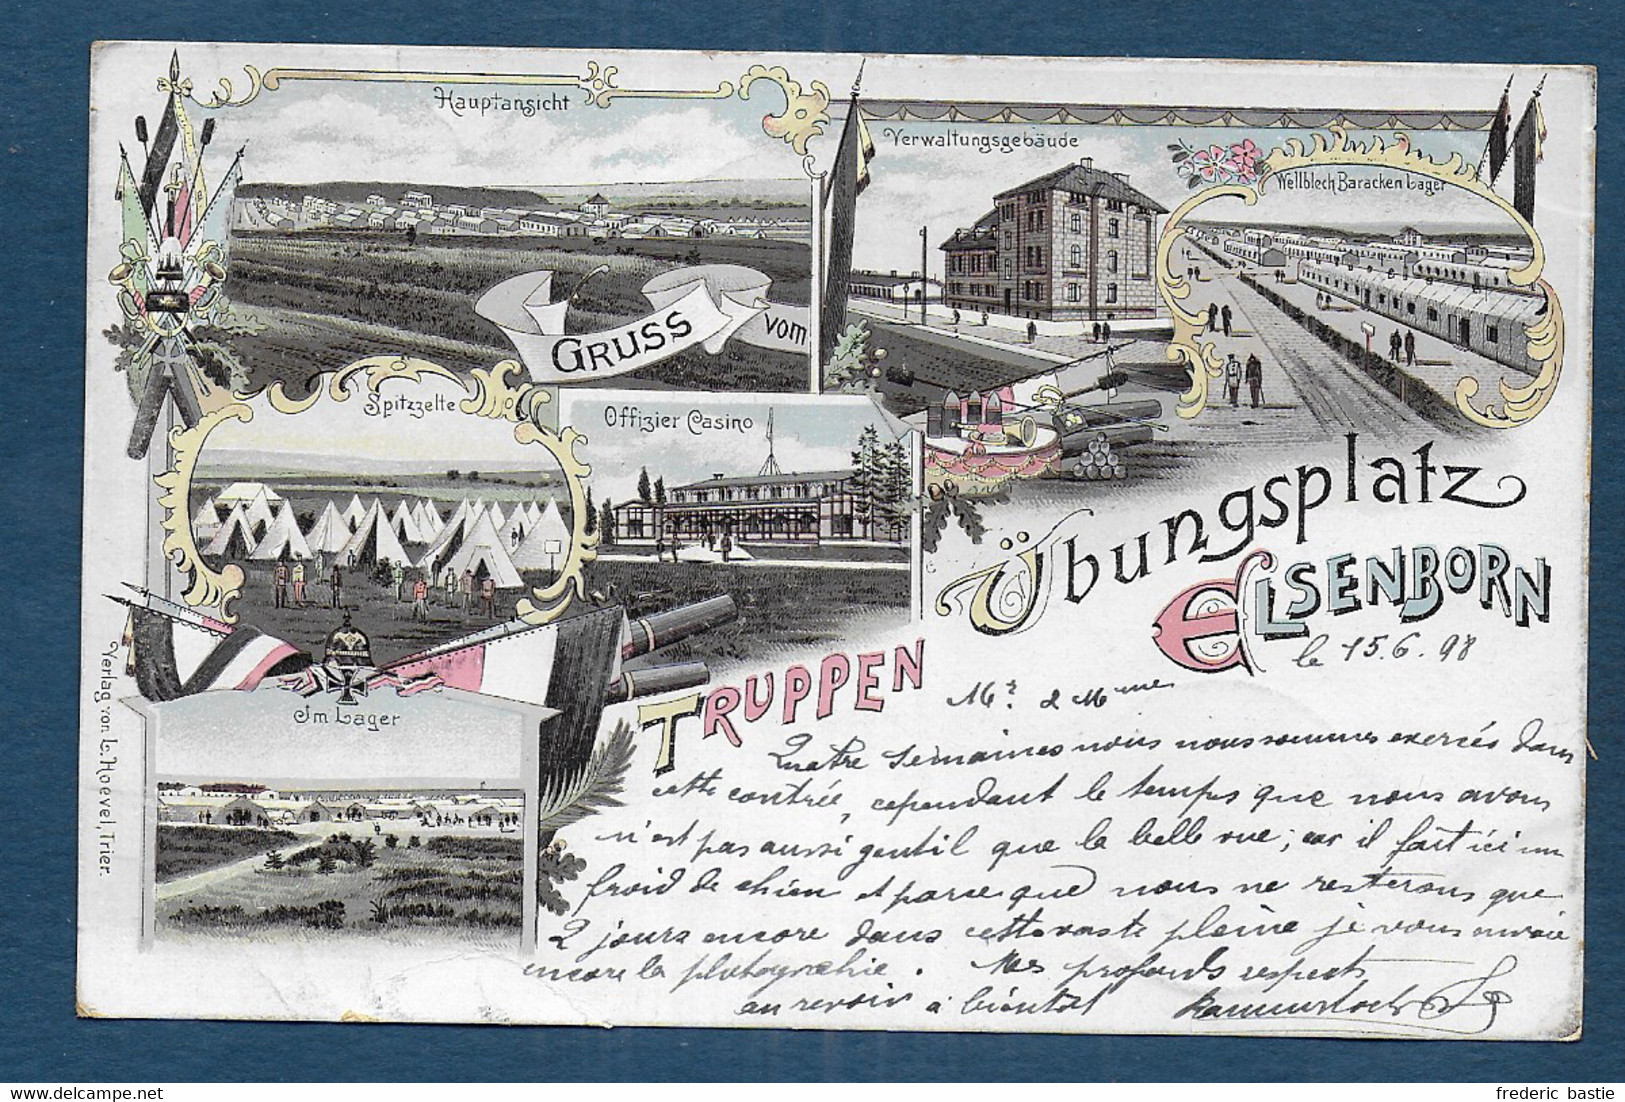 Hauptansicht
Verwaltungsgebäude
Wellblech Baracken Lager
GRUSS vom
Spitzzelte
Offizier Casino
TRUPPEN Übungsplatz
ELSENBORN
Im Lager
Verlag von L. Hoevel, Trier.
le 15.6.98
Mr. & Mme
Quatre semaines nous nous sommes exercés dans
cette contrée, cependant le temps que nous avons
n'est pas aussi gentil que la belle vue; car il fait ici un
froid de chien et parce que nous ne resterons que
2 jours encore dans cette vaste pleine je vous envoie
encore la photographie. Mes profonds respects
au revoir à bientot
frederic bastie